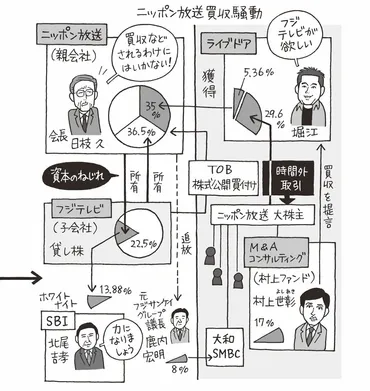 ニッポン放送買収騒動
ニッポン放送
(親会社)
買収など
されるわけに
はいかない!
会長 日枝 久
35
%
36.5%
ライブドア
フジ
テレビが
欲しい
獲得
5.36%
29.6
%
堀江
資本のねじれ
所有
所有
TOB
株式公開買付け
時間外
取引
買収を提言
フジテレビ
(子会社)
貸し株
22.5%
追放
ニッポン放送 大株主
M&A
コンサルティング
(村上ファンド)
よしあき
村上世彰
17%
ホワイト
ナイト
13.88%
SBI
北尾
吉孝
力に
なりま
しょう
元
フジサンケイ
グループ
議長
鹿内
宏明
8%
大和
SMBC